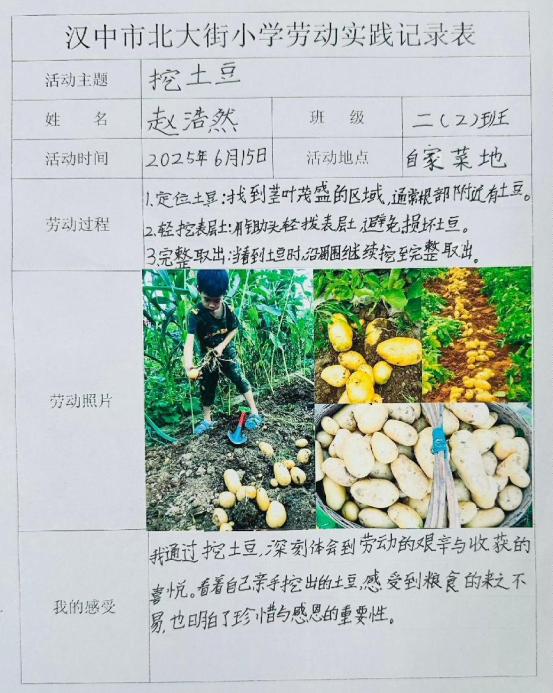 汉中市北大街小学劳动实践记录表
活动主题 挖土豆
姓名 赵浩然 班级 二(2)班
活动时间 2025年6月15日 活动地点 自家菜地
劳动过程
1.定位土豆:找到茎叶茂盛的区域,通常根部附近有土豆。
2.轻挖表层土:用锄头轻拨表层土,避免损坏土豆。
3.完整取出:当看到土豆时,沿周围继续挖至完整取出。
劳动照片
我的感受
我通过挖土豆,深刻体会到劳动的艰辛与收获的
喜悦。看着自己亲手挖出的土豆,感受到粮食的来之不
易,也明白了珍惜与感恩的重要性。